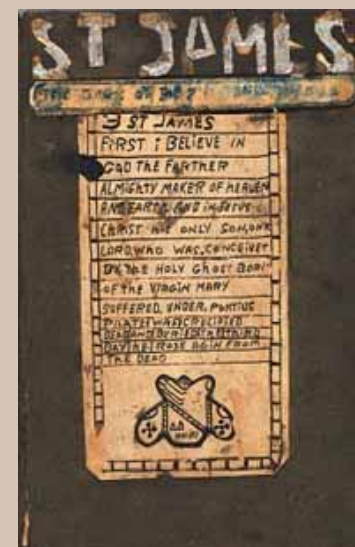 ST JAMES
THE
3 ST JAMES
FIRST I BELIEVE IN
GOD THE FARTHER
ALMIGHTY MAKER OF HEAVEN
AND EARTH AND IN JESUS
CHRIST HIE ONLY SON, OUR
LORD, WHO WAS, CONCEIVET
BY THE HOLY GHOST BORN
OF THE VIRGIN MARY
SUFFERED, UNDER, PONTIUS
PILATE WAS CRUCIFIED
DEAD
DAY HE ROSE AGIN FROM
THE DEAD